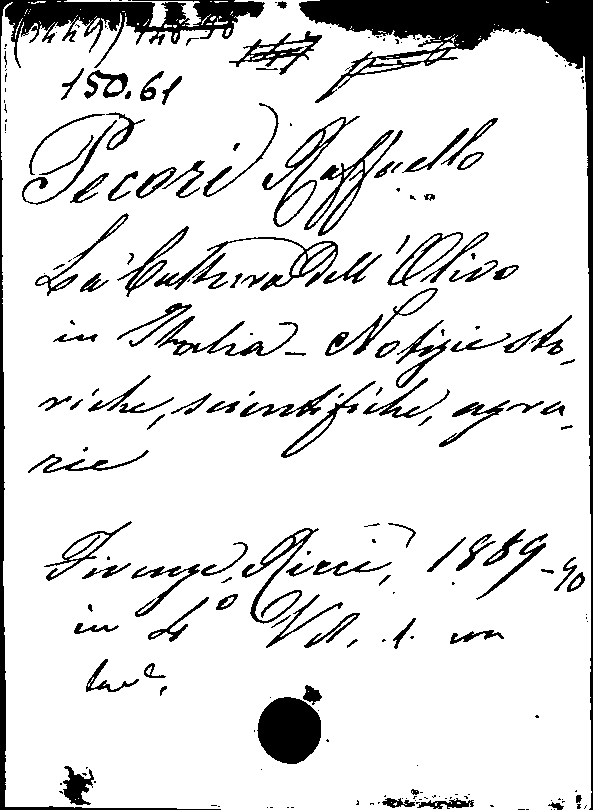 (2449)
150.61
Pecori Raffaello
La Cultura dell'Olivo
in Italia - Notizie sto-
riche, scientifiche, agra-
rie
Firenze, Ricci, 1889-90
in 4° Vol. 1. con
tav<sup>e</sup>.